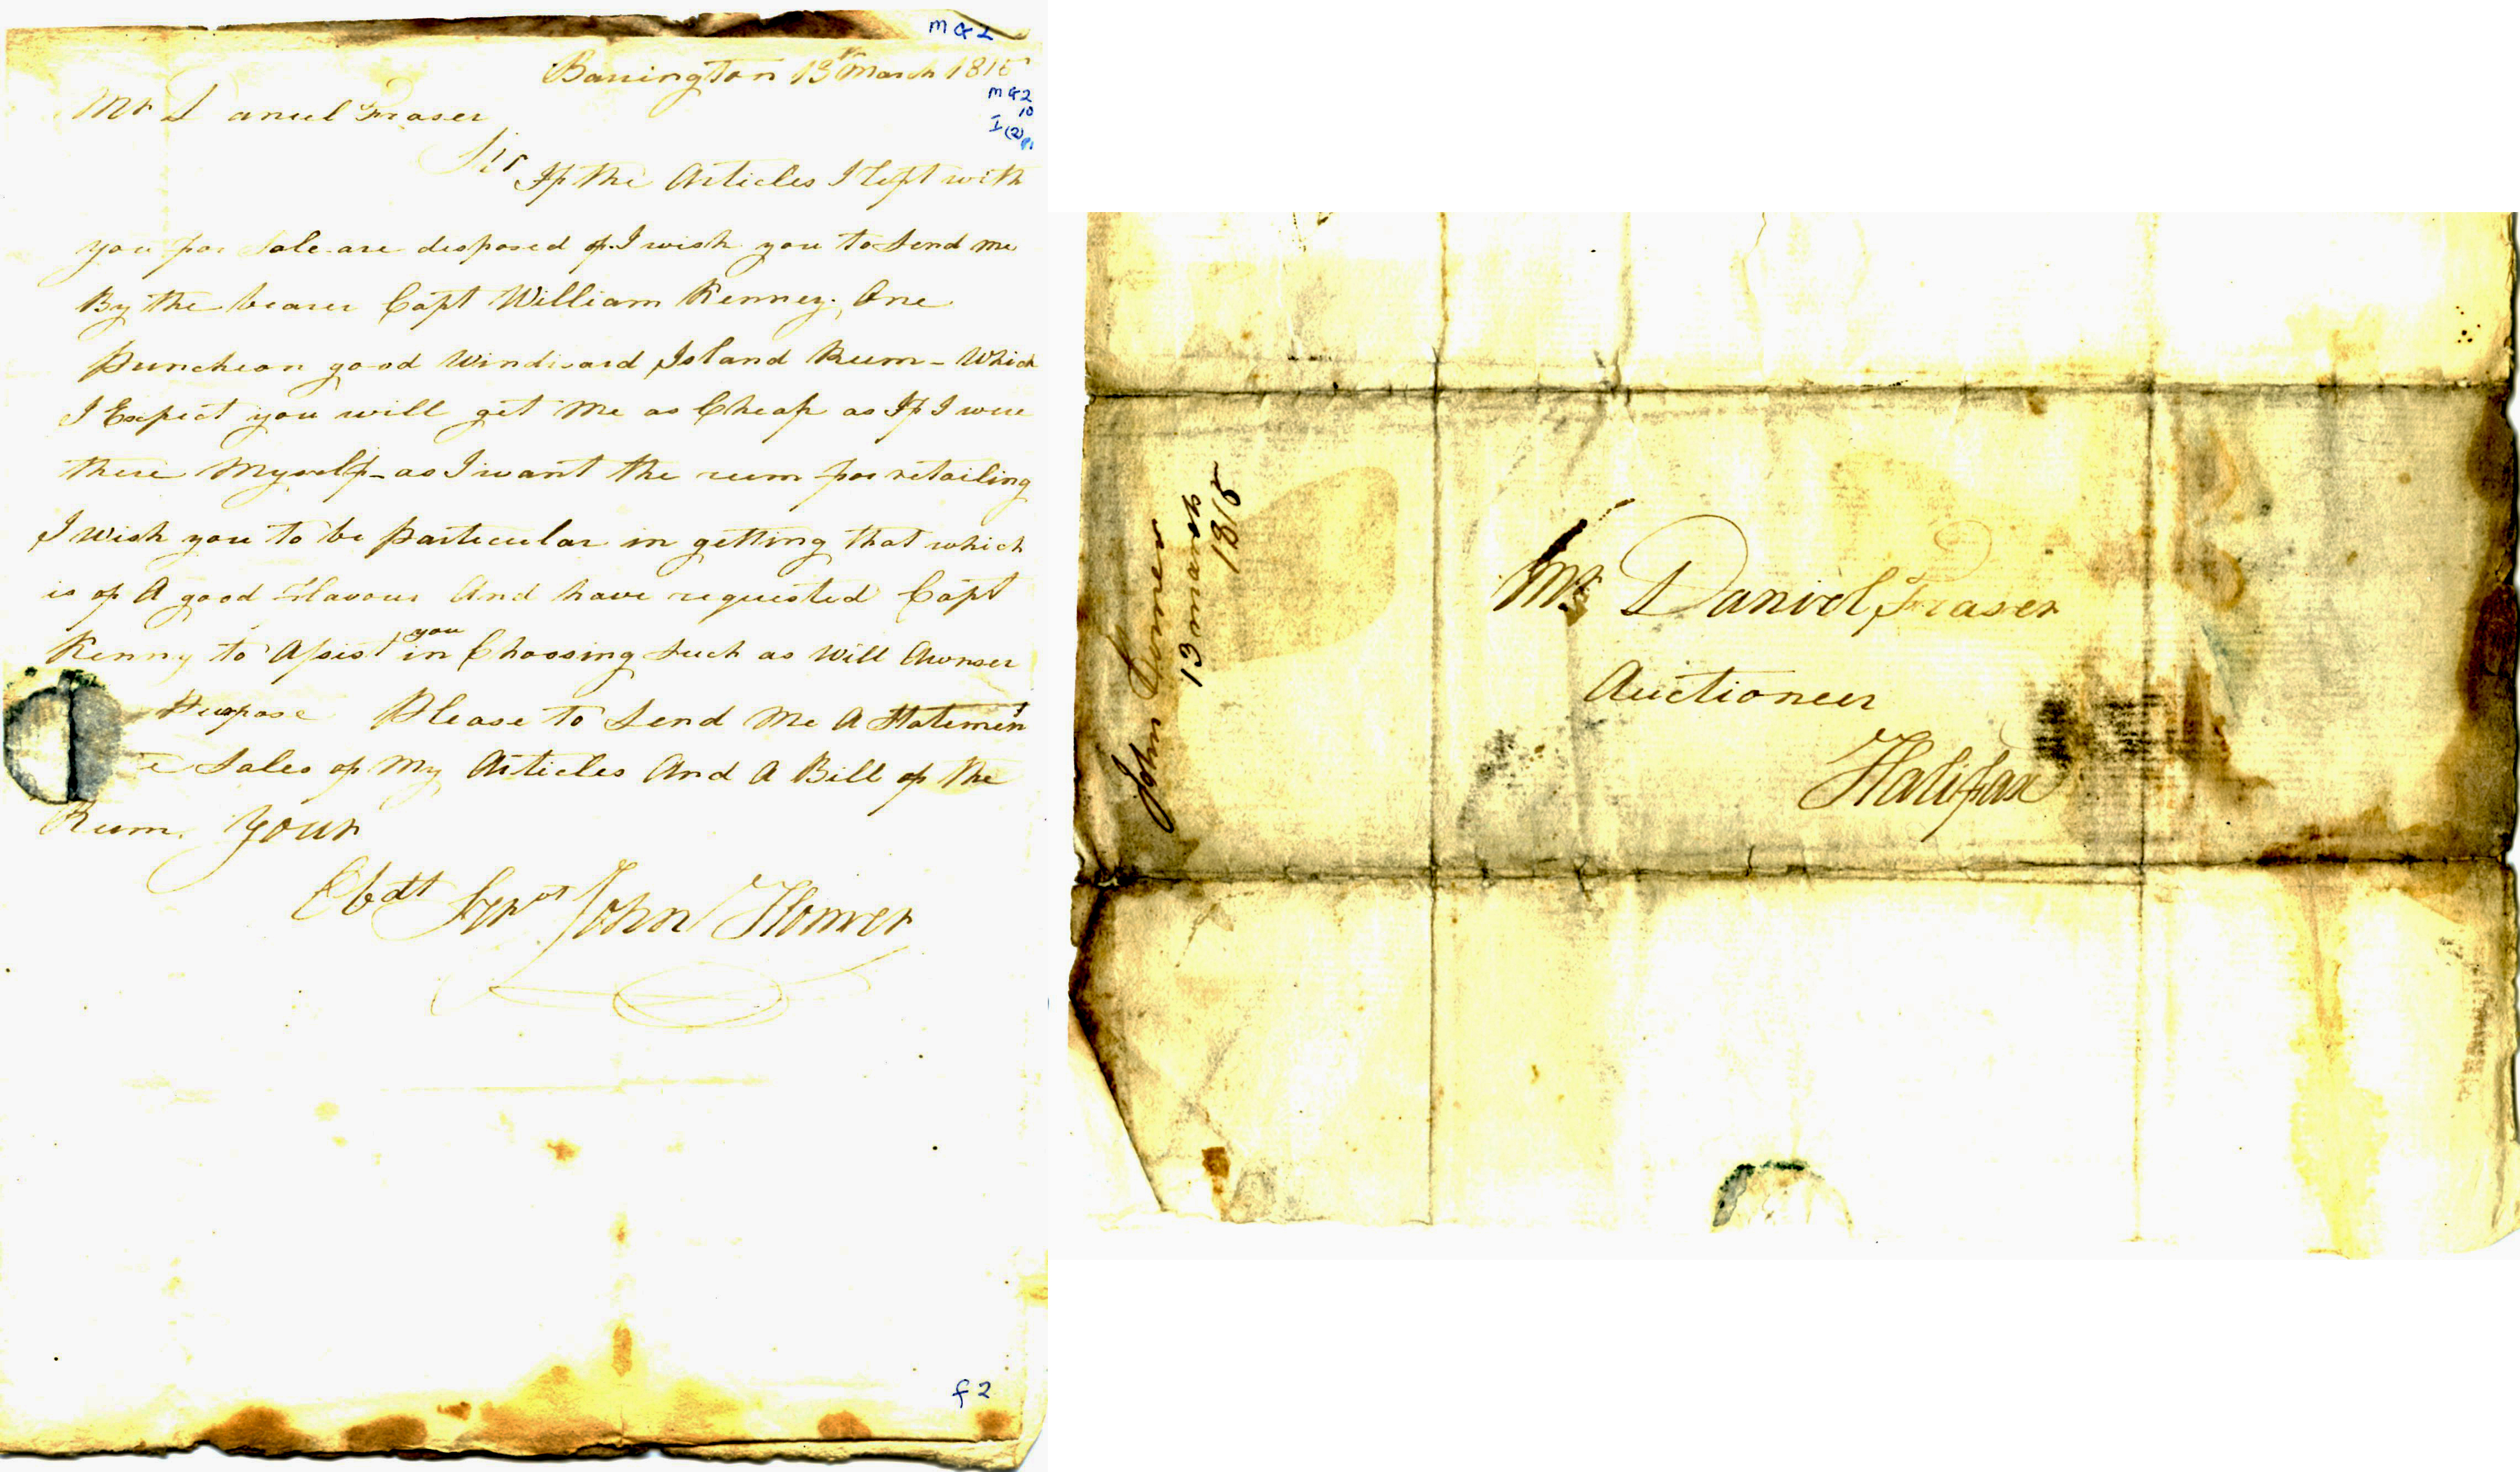 M G 2
Barrington 13th March 1815
M G 2
10
I (2)
Mr Daniel Fraser
Sir
If the Articles I left with
you for Sale are desposed of I wish you to Send me
By the bearer Capt William Kenney, One
Puncheon good Windward Island Rum - Which
I Expect you will get me as Cheap as If I were
there Myself - as I want the rum for retailing
I Wish you to be Particular in getting that which
is of A good Flavour And have requested Capt
Kenny to Assist you in Choosing Such as Will Awnser
Purpose Please to Send Me A Statement
Sales of My Articles And A Bill of the
Rum. Your
Obdt Servt John Homer
f 2
John Homer
13 march
1815
Mr Daniel Fraser
Auctioneer
Halifax